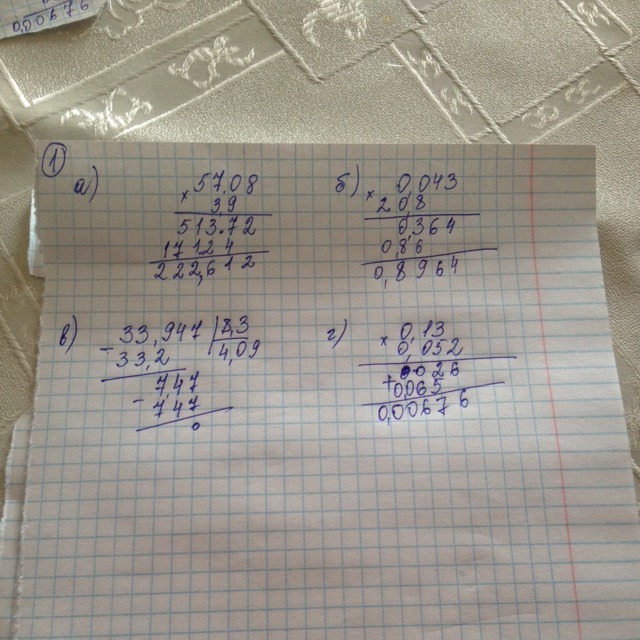 0,00676
1
а)
57,08
× 39
513.72
17124
222,612
б)
0,043
× 20,8
0,364
0,86
0,8964
в)
33,947 | 8,3
- 33,2 | 4,09
747
- 747
0
г)
0,13
× 0,052
0026
+ 0,065
0,00676